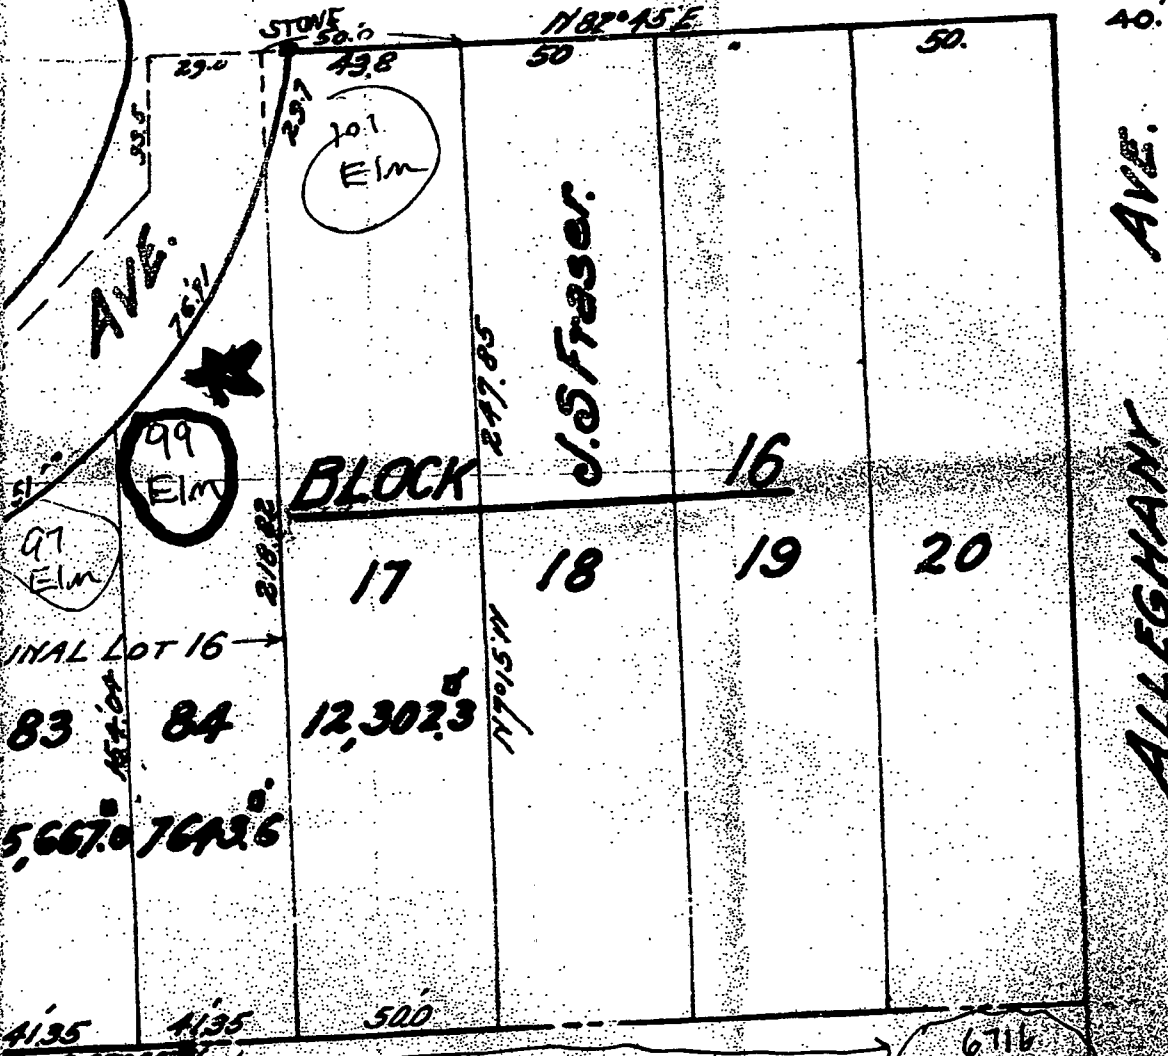 STONE
N82°45'E
40.'
50.0
29.0
43.8
50
50.
29.7
33.5
101
Elm
AVE.
AVE.
76.91
J.S Fraser.
247.85
99
Elm
BLOCK
16
97
Elm
218.82
17
18
19
20
ALLEGHANY
INAL LOT 16
N7°15'W
83
154.04
84
12,302.3
5,667.0
7643.6
41.35
41.35
50.0
6716